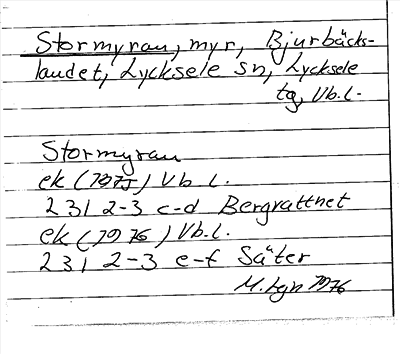 Stormyran, myr, Bjurbäcks-
landet, Lycksele sn, Lycksele
tg, Vb.l.
Stormyran
ek (1975) Vb l.
231 2-3 c-d Bergvattnet
ek (1976) Vb.l.
231 2-3 e-f Säter
M. Lgn 1976